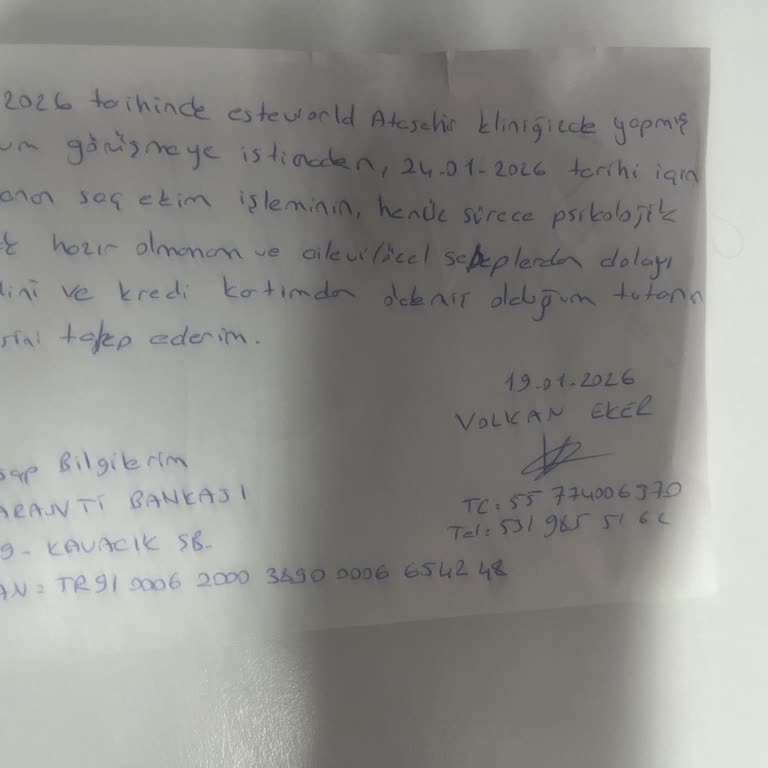 2026 tarihinde esteworld Ataşehir kliniğizde yapmış
um görüşmeye istinaden, 24.01-2026 tarihi için
anan saç ekim işleminin, henüz sürece psikolojik
k hazır olmamam ve ailevi/özel sebeplerden dolayı
lini ve kredi kartımdan ödemiş olduğum tutarın
sini talep ederim.
19.01.2026
VOLKAN EKER
sap Bilgilerim
ARANTİ BANKASI
TC: 55 774006370
Tel: 531 985 51 62
9- KAVACIK ŞB.
AN = TR91 0006 2000 3890 0006 6542 48